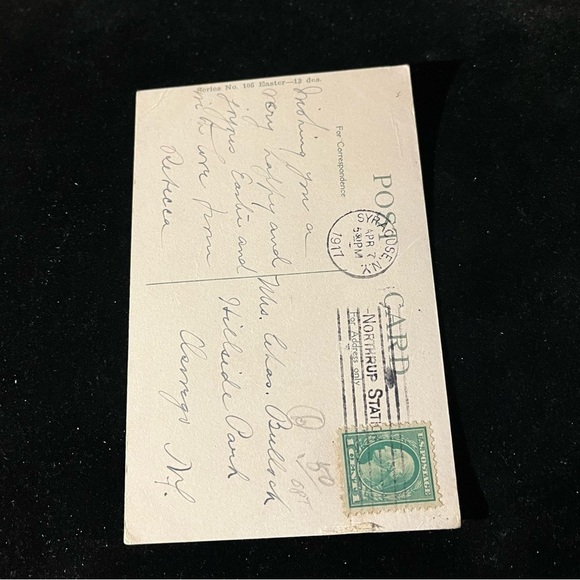 Series No. 105 Easter—12 des.
POST CARD
For Correspondence
For Address only
SYRACUSE, N.Y.
APR 7
5 30 PM
1917
NORTHRUP STATI
U.S. POSTAGE
1 CENT 1
Wishing you a
very happy and
joyous Easter and
with love from
Rebecca
Mrs. Chas. Bullock
Hillside Park
Owego
N.Y.
50